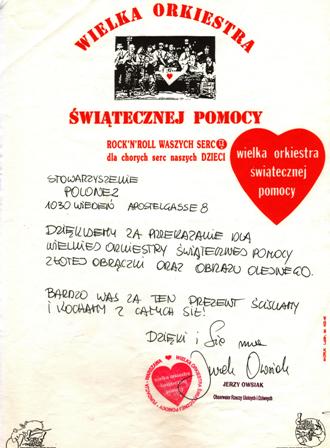 WIELKA ORKIESTRA
ŚWIĄTECZNEJ POMOCY
ROCK'N'ROLL WASZYCH SERC
dla chorych serc naszych DZIECI
wielka orkiestra
świątecznej
pomocy
STOWARZYSZENIE
POLONEZ
1030 WIEDEŃ APOSTELGASSE 8
DZIĘKUJEMY ZA PRZEKAZANIE DLA
WIELKIEJ ORKIESTRY ŚWIĄTECZNEJ POMOCY
ZŁOTEJ OBRĄCZKI ORAZ OBRAZU OLEJNEGO.
BARDZO WAS ZA TEN PREZENT ŚCISKAMY
I KOCHAMY Z CAŁYCH SIŁ!
DZIĘKI i Się ma
Jurek Owsiak
JERZY OWSIAK
Obserwator Rzeczy Ulotnych i Dziwnych
WIELKA ORKIESTRA ŚWIĄTECZNEJ POMOCY • WARSZAWA
wielka orkiestra
świątecznej
pomocy